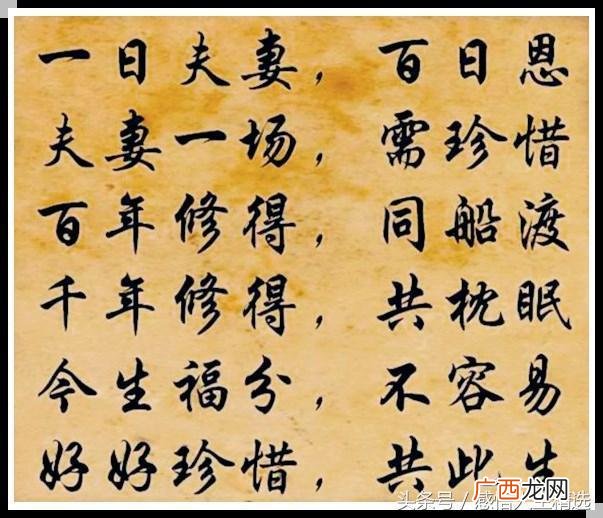 一日夫妻，百日恩
夫妻一场，需珍惜
百年修得，同船渡
千年修得，共枕眠
今生福分，不容易
好好珍惜，共此生
头条号／感悟人生精选
广西龙网